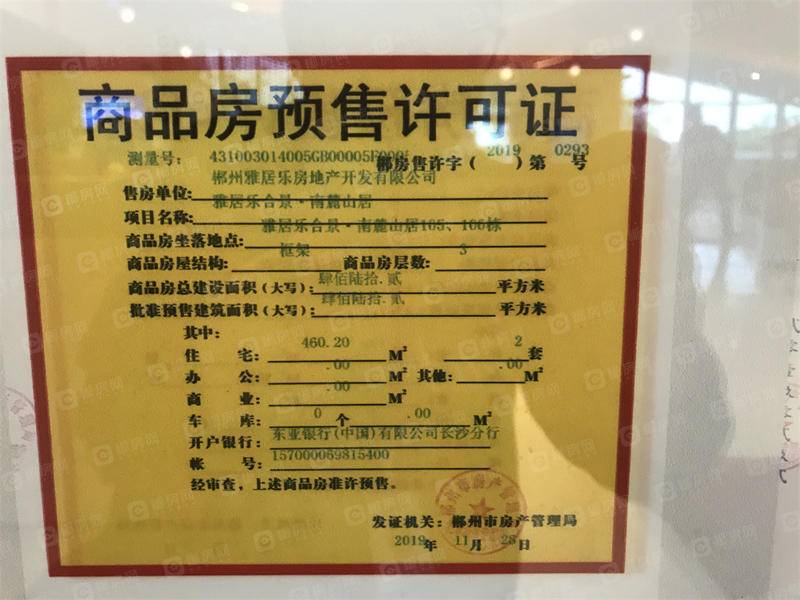 商品房预售许可证
测量号: 431003014005GB00005F000 郴房售许字(2019)第0293号
售房单位: 郴州雅居乐房地产开发有限公司
项目名称: 雅居乐合景·南麓山居
商品房坐落地点: 雅居乐合景·南麓山居105、106栋
商品房屋结构: 框架 商品房层数: 3
商品房总建设面积(大写): 肆佰陆拾.贰 平方米
批准预售建筑面积(大写): 肆佰陆拾.贰 平方米
其中:
住宅: 460.20 M² 2 套
办公: .00 M² 其他: .00 M²
商业: .00 M²
车库: 0 个 .00 M²
开户银行: 东亚银行(中国)有限公司长沙分行
帐号: 157000069815400
经审查,上述商品房准许预售。
发证机关: 郴州市房产管理局
2019年 11月 28日